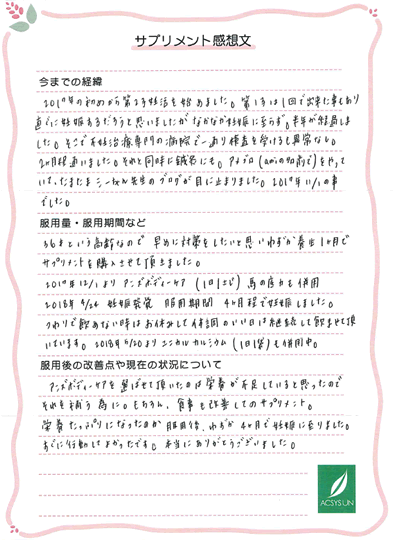 サプリメント感想文
今までの経緯
2017年の初めから第2子妊活を始めました。第1子は1回で出来た事もあり
直ぐに妊娠するだろうと思いましたがなかなか妊娠に至らず。半年が経過しま
した。そこで不妊治療専門の病院で一通り検査を受けるも異常なし。
2ヶ月程通いました。それと同時に鍼灸にも。アメブロ(amiの名前で)をやって
いて、たまたま 先生のブログが目に止まりました。2017年11/1の事
でした。
服用量・服用期間など
36才という高齢なので 早めに対策をしたいと思いわずか 1ヶ月で
サプリメントを購入させて頂きました。
2017年12/1より アンズボディーケア (1日 ) 馬の底力も併用
2018年4/24 妊娠発覚 服用期間 4ヶ月程で妊娠しました。
つわりで飲めない時はお休みして体調のいい日は継続して飲ませて頂
いています。2018年6/20よりユニカルカルシウム(1日1袋)も併用中。
服用後の改善点や現在の状況について
アンズボディーケアを選ばせて頂いたのは栄養が不足していると思ったので
それを補う為に。もちろん、食事も改善してのサプリメント。
栄養たっぷりになったのか 服用後、わずか4ヶ月で妊娠に至りました。
すぐに行動してよかったです。本当にありがとうございました。
ACSYSUN